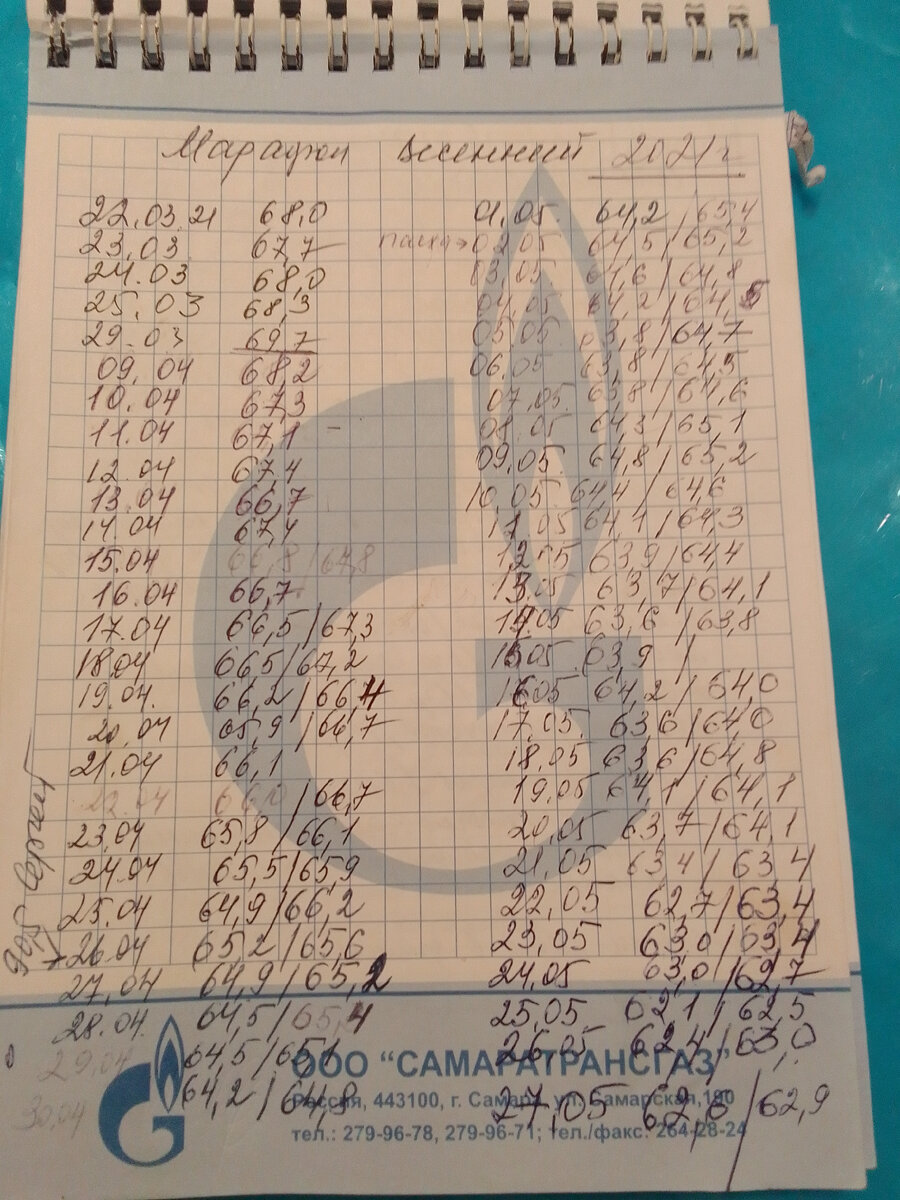 Марафон Весенний 2021г
22.03.21 68,0
23,03 67,7
24.03 68,0
25.03 68,3
29.03 69,7
09.04 68,2
10.04 67,3
11.04 67,1 -
12.04 67,4
13.04 66,7
14.04 67,4
15.04 66,8/67,8
16.04 66,7
17.04 66,5/67,3
18.04 66,5/67,2
19.04. 66,2/66,4
20,04 65,9/66,7
21.04 66,1
22.04 66,0/66,7
23,04 65,8/66,1
24.04 65,5/65,9
25.04 64,9/66,2
26.04 65,2/65,6
27,04 64,9/65,2
28.04. 64,5/65,4
29,04 64,5/65,1
30,04 64,2/64,8
90,5 Сергей
01.05. 64,2/65,4
пасха→02.05 64,5/65,2
03.05 64,6/64,8
04.05 64,2/64,5
05.05 63,8/64,7
06.05 63,8/64,5
07.05 63,8/64,6
08.05 64,3/65,1
09.05. 64,8/65,2
10.05 64,4/64,6
11.05 64,1/64,3
12.05 63,9/64,4
13.05 63,7/64,1
14.05 63,6/63,8
15.05 63,9 /
16.05 64,2/64,0
17.05. 63,6/64,0
18,05 63,6/64,8
19,05 64,1/64,1
20,05 63,7/64,1
21,05 63,4/63,4
22,05 62,7/63,4
23,05 63,0/63,4
24,05 63,0/62,7
25,05 62,1/62,5
26,05 62,4/63,0
27,05 62,6/62,9
ООО “САМАРАТРАНСГАЗ”
Россия, 443100, г. Самара, ул. Самарская,190
тел.: 279-96-78, 279-96-71; тел./факс: 264-28-24